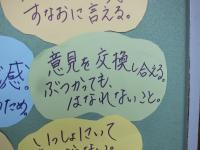 すなおに言える。
感。
ため。
意見を交換し合える。
ぶつかっても、
はなれないこと。
いっしょにいて